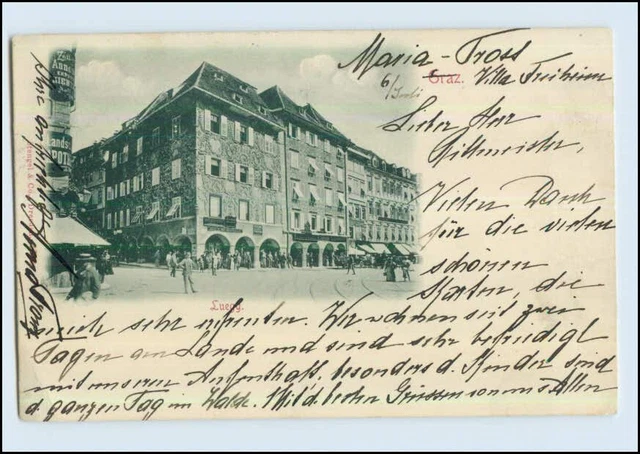 Maria-Trost
Graz. Villa Freiheim
6/Juli
Lieber Herr
Rittmeister,
Vielen Dank
für die vielen
schönen
Karten, die
mich sehr erfreuten. Wir wohnen seit zwei
Tagen am Lande und sind sehr befriedigt
mit unseren Aufenthalt, besonders d. Kinder sind
d. ganzen Tag im Walde. Mit d. besten Grüssen von uns Allen
Ihre
Luegg.